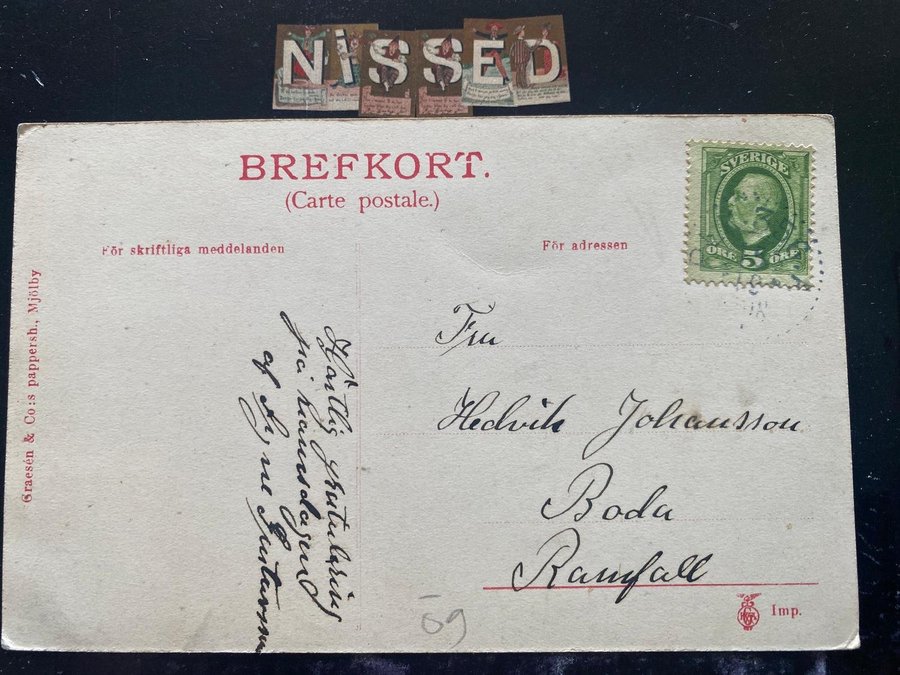 NISSED
BREFKORT.
(Carte postale.)
SVERIGE
ÖRE 5 ÖRE
För skriftliga meddelanden
För adressen
Graesén & Co:s pappersh., Mjölby
Hjärtlig gratulering
på namnsdagen
af Gustavsson
Fru
Hedvik Johansson
Boda
Ramfall
Imp.